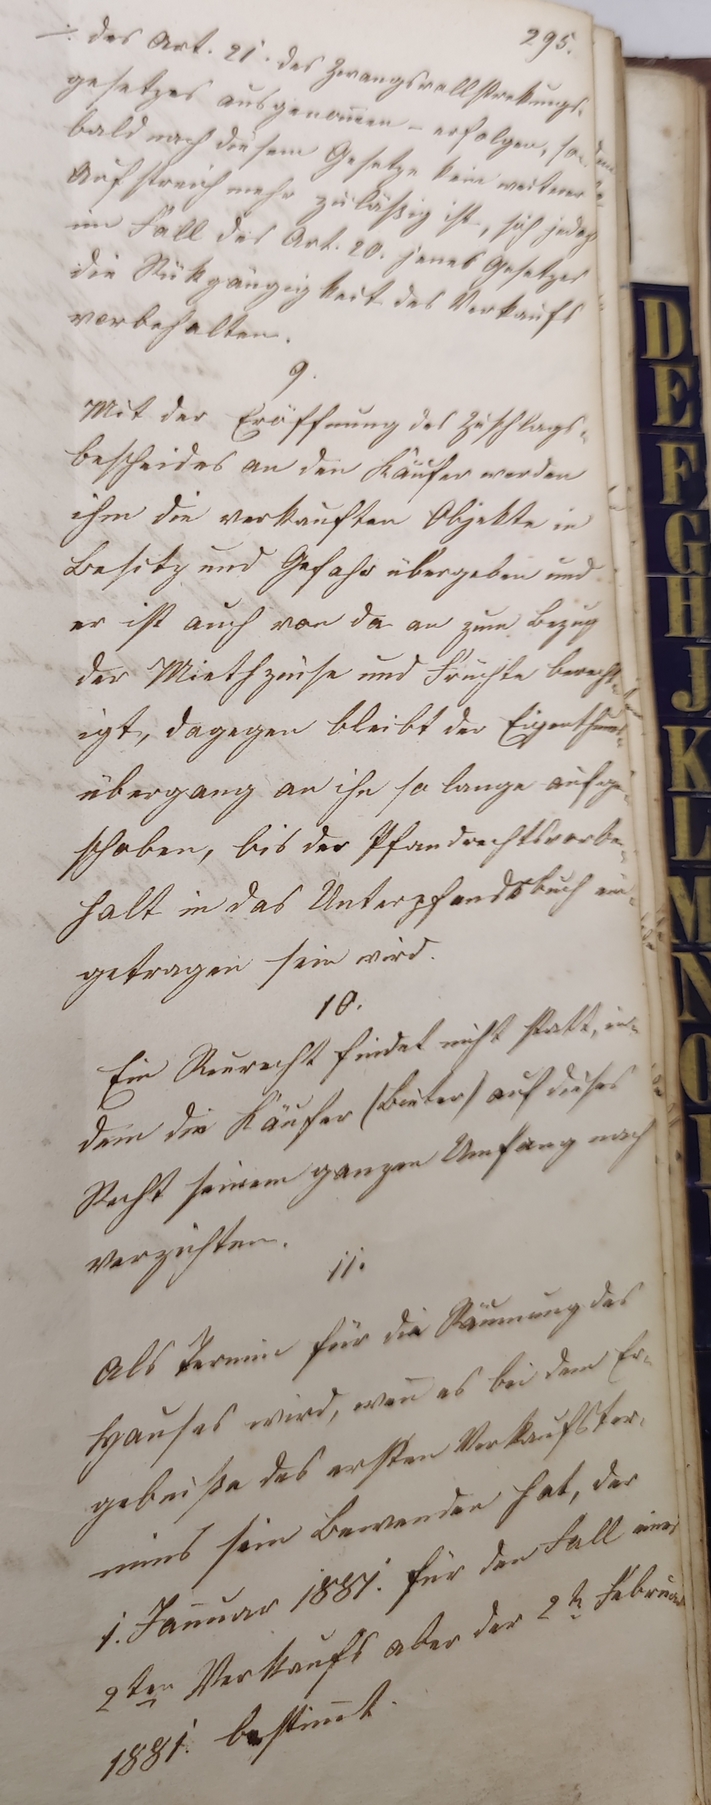 295.
÷ des Art. 21. des Zwangsvollstrekungs-
gesetzes ausgenom̄en – erfolgen, so-
bald nach diesem Gesetze kein weiterer
Aufstreich mehr zuläßig ist, sich jedoch
im Fall des Art. 20. jenes Gesetzes
die Rükgängigkeit des Verkaufs
vorbehalten.
9.
Mit der Eröffnung des Zuschlags-
bescheides an den Käufer werden
ihm die verkauften Objekte in
Besitz und Gefahr übergeben und
er ist auch von da an zum Bezug
der Miethzinse und Früchte berecht-
igt, dagegen bleibt der Eigenthums-
übergang an ihn so lange aufge-
schoben, bis der Pfandrechtsvorbe-
halt in das Unterpfandsbuch ein-
getragen sein wird.
10.
Ein Reurecht findet nicht statt, in-
dem die Käufer (Bieter) auf dieses
Recht seinem ganzen Umfang nach
verzichten.
11.
Als Termin für die Räumung des
Hauses wird, wen̄ es bei dem Er-
gebniße des ersten Verkaufster-
mins sein Bewenden hat, der
1. Januar 1881. für den Fall eines
2ten Verkaufs aber der 2te Februar
1881. bestim̄t.
D
E
F
G
H
J
K
L
M
N
O